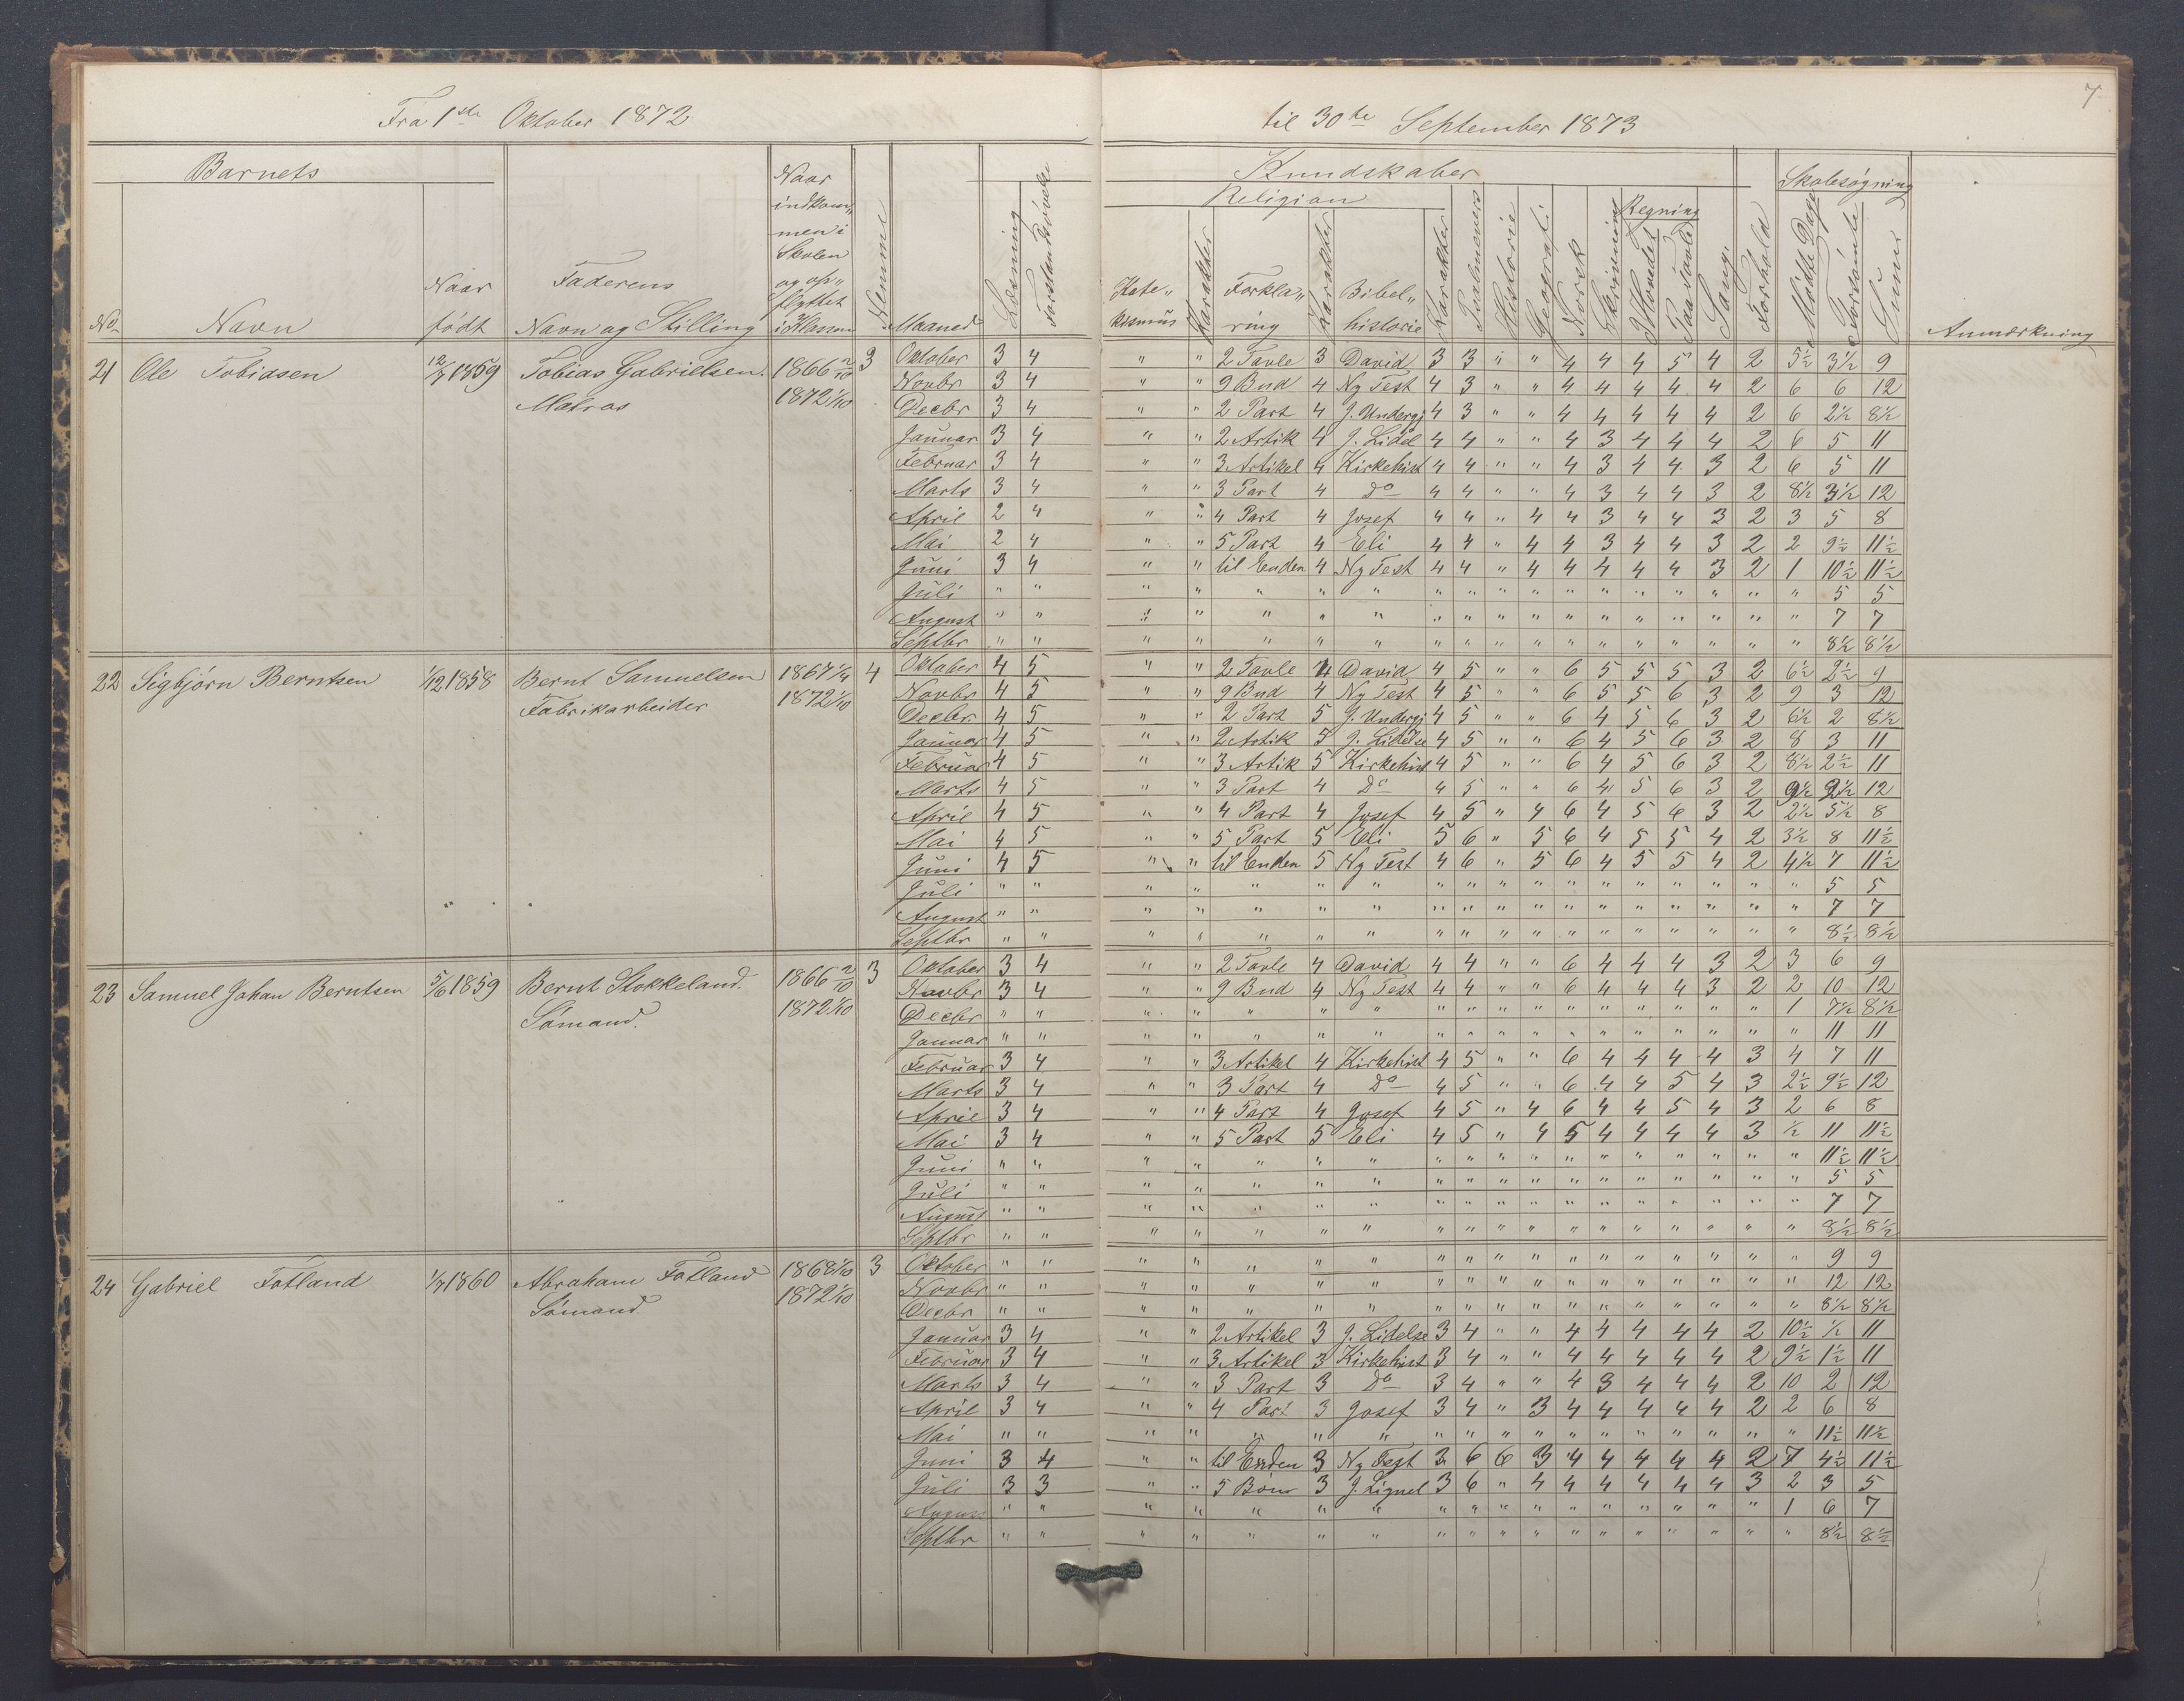 Fra 1ste Oktober 1872 til 30te September 1873
7
Barnets
Naar indkom„men i Skolen og op„flyttet i 3 Klasse
Nemme
Læsning
Forstandsøvelse
Kundskaber
Religion
Regning
Skolesøgning
No Navn Naar født Faderens Navn og Stilling Maaned
Kate„kismus Karakter Forkla„ring Karakter Bibel„historie Karakter Psalmevers Historie Geografi Norsk Skrivning Hovedet Paa Tavle Sang. Forhold Mødte Dage Forsømte Sum Anmærkning
21 Ole Tobiasen 12/7 1859 Tobias Gabrielsen. 1866 2/10 3 Oktober 3 4 " " 2 Tavle 3 David 3 3 " " 4 4 4 5 4 2 5½ 3½ 9
Matros 1872 1/10 Novbr 3 4 " " 9 Bud 4 Ny Test 4 3 " " 4 4 4 4 4 2 6 6 12
Decbr 3 4 " " 2 Part 4 J. Undergj 4 3 " " 4 4 4 4 4 2 6 2½ 8½
Januar 3 4 " " 2 Artik 4 J. Lidel 4 4 " " 4 3 4 4 4 2 6 5 11
Februar 3 4 " " 3 Artikel 4 Kirkehist 4 4 " " 4 3 4 4 3 2 6 5 11
Marts 3 4 " " 3 Part 4 Do 4 4 " " 4 3 4 4 3 2 8½ 3½ 12
April 2 4 " " 4 Part 4 Josef 4 4 " 4 4 3 4 4 3 2 3 5 8
Mai 2 4 " " 5 Part 4 Eli 4 4 " 4 4 3 4 4 3 2 2 9½ 11½
Juni 3 4 " " til Enden 4 Ny Test 4 4 " 4 4 4 4 4 3 2 1 10½ 11½
Juli " " " " " " " " " " " " " " " " " " 5 5
August " " " " " " " " " " " " " " " " " " 7 7
Septbr " " " " " " " " " " " " " " " " " " 8½ 8½
22 Sigbjørn Berntsen 1/12 1858 Bernt Samuelsen 1867 1/4 4 Oktober 4 5 " " 2 Tavle 4 David 4 5 " " 6 5 5 5 3 2 6½ 2½ 9
Fabrikarbeider 1872 1/10 Novbr 4 5 " " 9 Bud 4 Ny Test 4 5 " " 6 5 5 6 3 2 9 3 12
Decbr. 4 5 " " 2 Part 5 J. Undergj 4 5 " " 6 4 5 6 3 2 6½ 2 8½
Januar 4 5 " " 2 Artik 5 J. Lidelse 4 5 " " 6 4 5 6 3 2 8 3 11
Februar 4 5 " " 3 Artik 5 Kirkehist 4 5 " " 6 4 5 6 3 2 8½ 2½ 11
Marts 4 5 " " 3 Part 4 Do 4 5 " " 6 4 5 6 3 2 9½ 2½ 12
April 4 5 " " 4 Part 4 Josef 4 5 " 4 6 4 5 6 3 2 2½ 5½ 8
Mai 4 5 " " 5 Part 5 Eli 5 6 " 5 6 4 5 5 4 2 3½ 8 11½
Juni 4 5 " " til Enden 5 Ny Test 4 6 " 5 6 4 5 5 4 2 4½ 7 11½
Juli " " " " " " " " " " " " " " " " " " 5 5
August " " " " " " " " " " " " " " " " " " 7 7
Septbr " " " " " " " " " " " " " " " " " " 8½ 8½
23 Samuel Johan Berntsen 5/6 1859 Bernt Stokkeland. 1866 2/10 3 Oktober 3 4 " " 2 Tavle 4 David 4 4 " " 6 4 4 4 3 2 3 6 9
Sømand. 1872 1/10 Novbr 3 4 " " 9 Bud 4 Ny Test 4 4 " " 6 4 4 4 3 2 2 10 12
Decbr " " " " " " " " " " " " " " " " " 1 7½ 8½
Januar " " " " " " " " " " " " " " " " " " 11 11
Februar 3 4 " " 3 Artikel 4 Kirkehist 4 5 " " 6 4 4 4 4 3 4 7 11
Marts 3 4 " " 3 Part 4 Do 4 5 " " 6 4 4 5 4 3 2½ 9½ 12
April 3 4 " " 4 Part 4 Josef 4 5 " 4 6 4 4 5 4 3 2 6 8
Mai 3 4 " " 5 Part 5 Eli 4 5 " 4 5 4 4 4 4 3 ½ 11 11½
Juni " " " " " " " " " " " " " " " " " " 11½ 11½
Juli " " " " " " " " " " " " " " " " " " 5 5
August " " " " " " " " " " " " " " " " " " 7 7
Septbr " " " " " " " " " " " " " " " " " " 8½ 8½
24 Gabriel Fotland 1/7 1860 Abraham Fotland 1868 1/10 3 Oktober " " " " " " " " " " " " " " " " " " 9 9
Sømand 1872 1/10 Novbr " " " " " " " " " " " " " " " " " " 12 12
Decbr " " " " " " " " " " " " " " " " " " 8½ 8½
Januar 3 4 " " 2 Artikel 3 J. Lidelse 3 4 " " 4 4 4 4 4 2 10½ ½ 11
Februar 3 4 " " 3 Artikel 3 Kirkehist 3 4 " " 4 4 4 4 4 2 9½ 1½ 11
Marts 3 4 " " 3 Part 3 Do 3 4 " " 4 3 4 4 4 2 10 2 12
April 3 4 " " 4 Part 3 Josef 3 4 " 3 4 4 4 4 4 2 2 6 8
Mai " " " " " " " " " " " " " " " " " " 11½ 11½
Juni 3 4 " " til Enden 3 Ny Test 3 6 6 3 4 4 4 4 4 2 7 4½ 11½
Juli 3 3 " " 5 Bøn 3 J. Lignel 3 6 " 4 4 4 4 4 4 3 2 3 5
August " " " " " " " " " " " " " " " " " 1 6 7
Septbr " " " " " " " " " " " " " " " " " " 8½ 8½